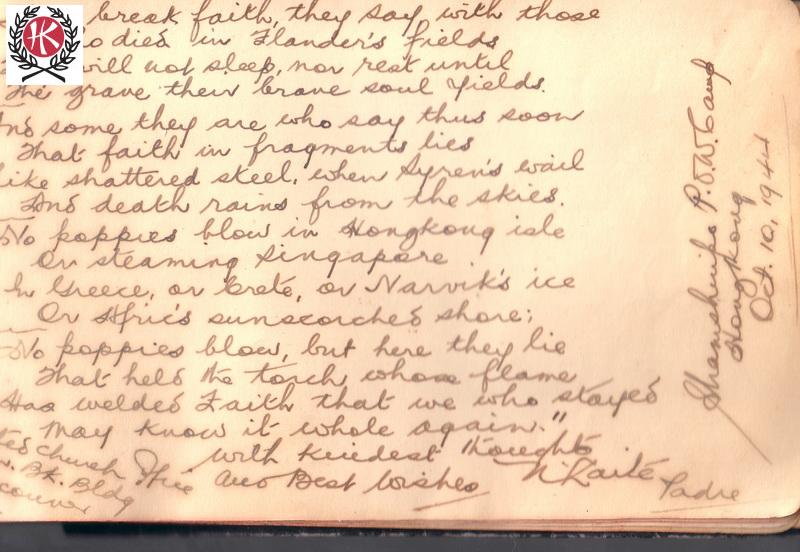 HK
break faith, they say with those
died in Flander's fields
will not sleep, nor rest until
The grave their brave soul yields.
And some they are who say thus soon
That faith in fragments lies
Like shattered steel, when Syren's wail
And death rains from the skies.
No poppies blow in Hongkong isle
Or steaming Singapore
In Greece, or Crete, or Narvik's ice
Or Afric's sunscorched shore;
No poppies blow, but here they lie
That held the torch whose flame
Has welded Faith that we who stayed
May know it whole again."
with kindest thoughts
and Best Wishes
Padre
Church Offices
Bk. Bldg
Shamshuipo P.O.W. Camp
Hongkong
Oct. 10, 1944